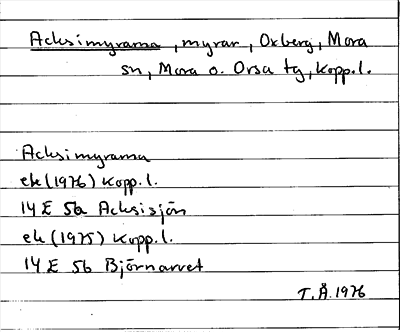 Acksimyrarna, myrar, Oxberg, Mora
sn, Mora o. Orsa tg, Kopp.l.
Acksimyrarna
ek (1976) Kopp.l.
14 E 5a Acksisjön
ek (1975) Kopp.l.
14 E 5b Björnarvet
T.Å. 1976